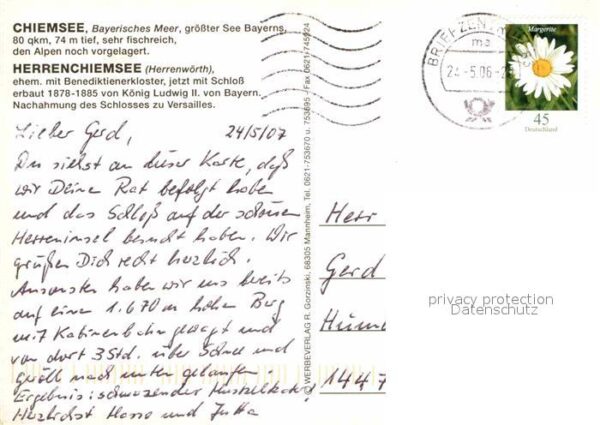 CHIEMSEE, Bayerisches Meer, größter See Bayerns,
80 qkm, 74 m tief, sehr fischreich,
den Alpen noch vorgelagert.
HERRENCHIEMSEE (Herrenwörth),
ehem. mit Benediktinerkloster, jetzt mit Schloß
erbaut 1878-1885 von König Ludwig II. von Bayern.
Nachahmung des Schlosses zu Versailles.
Lieber Gerd, 24/5/07
Du siehst an dieser Karte, daß
wir Deine Rat befolgt haben
und das Schloß auf der schönen
Herreninsel besucht haben. Wir
grüßen Dich recht herzlich.
Ansonsten haben wir uns bereits
auf einen 1.670 m hohen Berg
mit Kabinenbahn gewagt und
von dort 3 Std. über Schnee und
Geröll nach unten gelangen.
Ergebnis: schmerzender Muskelkater
Herzlichst Hasso und Jutta
© WERBEVERLAG R. Gorzinski, 68305 Mannheim, Tel. 0621-753670 u. 753695 - Fax 0621/745924
BRIEFZENTRUM
24.-5.06-2
Margerite
45
Deutschland
Herr
Gerd
1447
privacy protection
Datenschutz